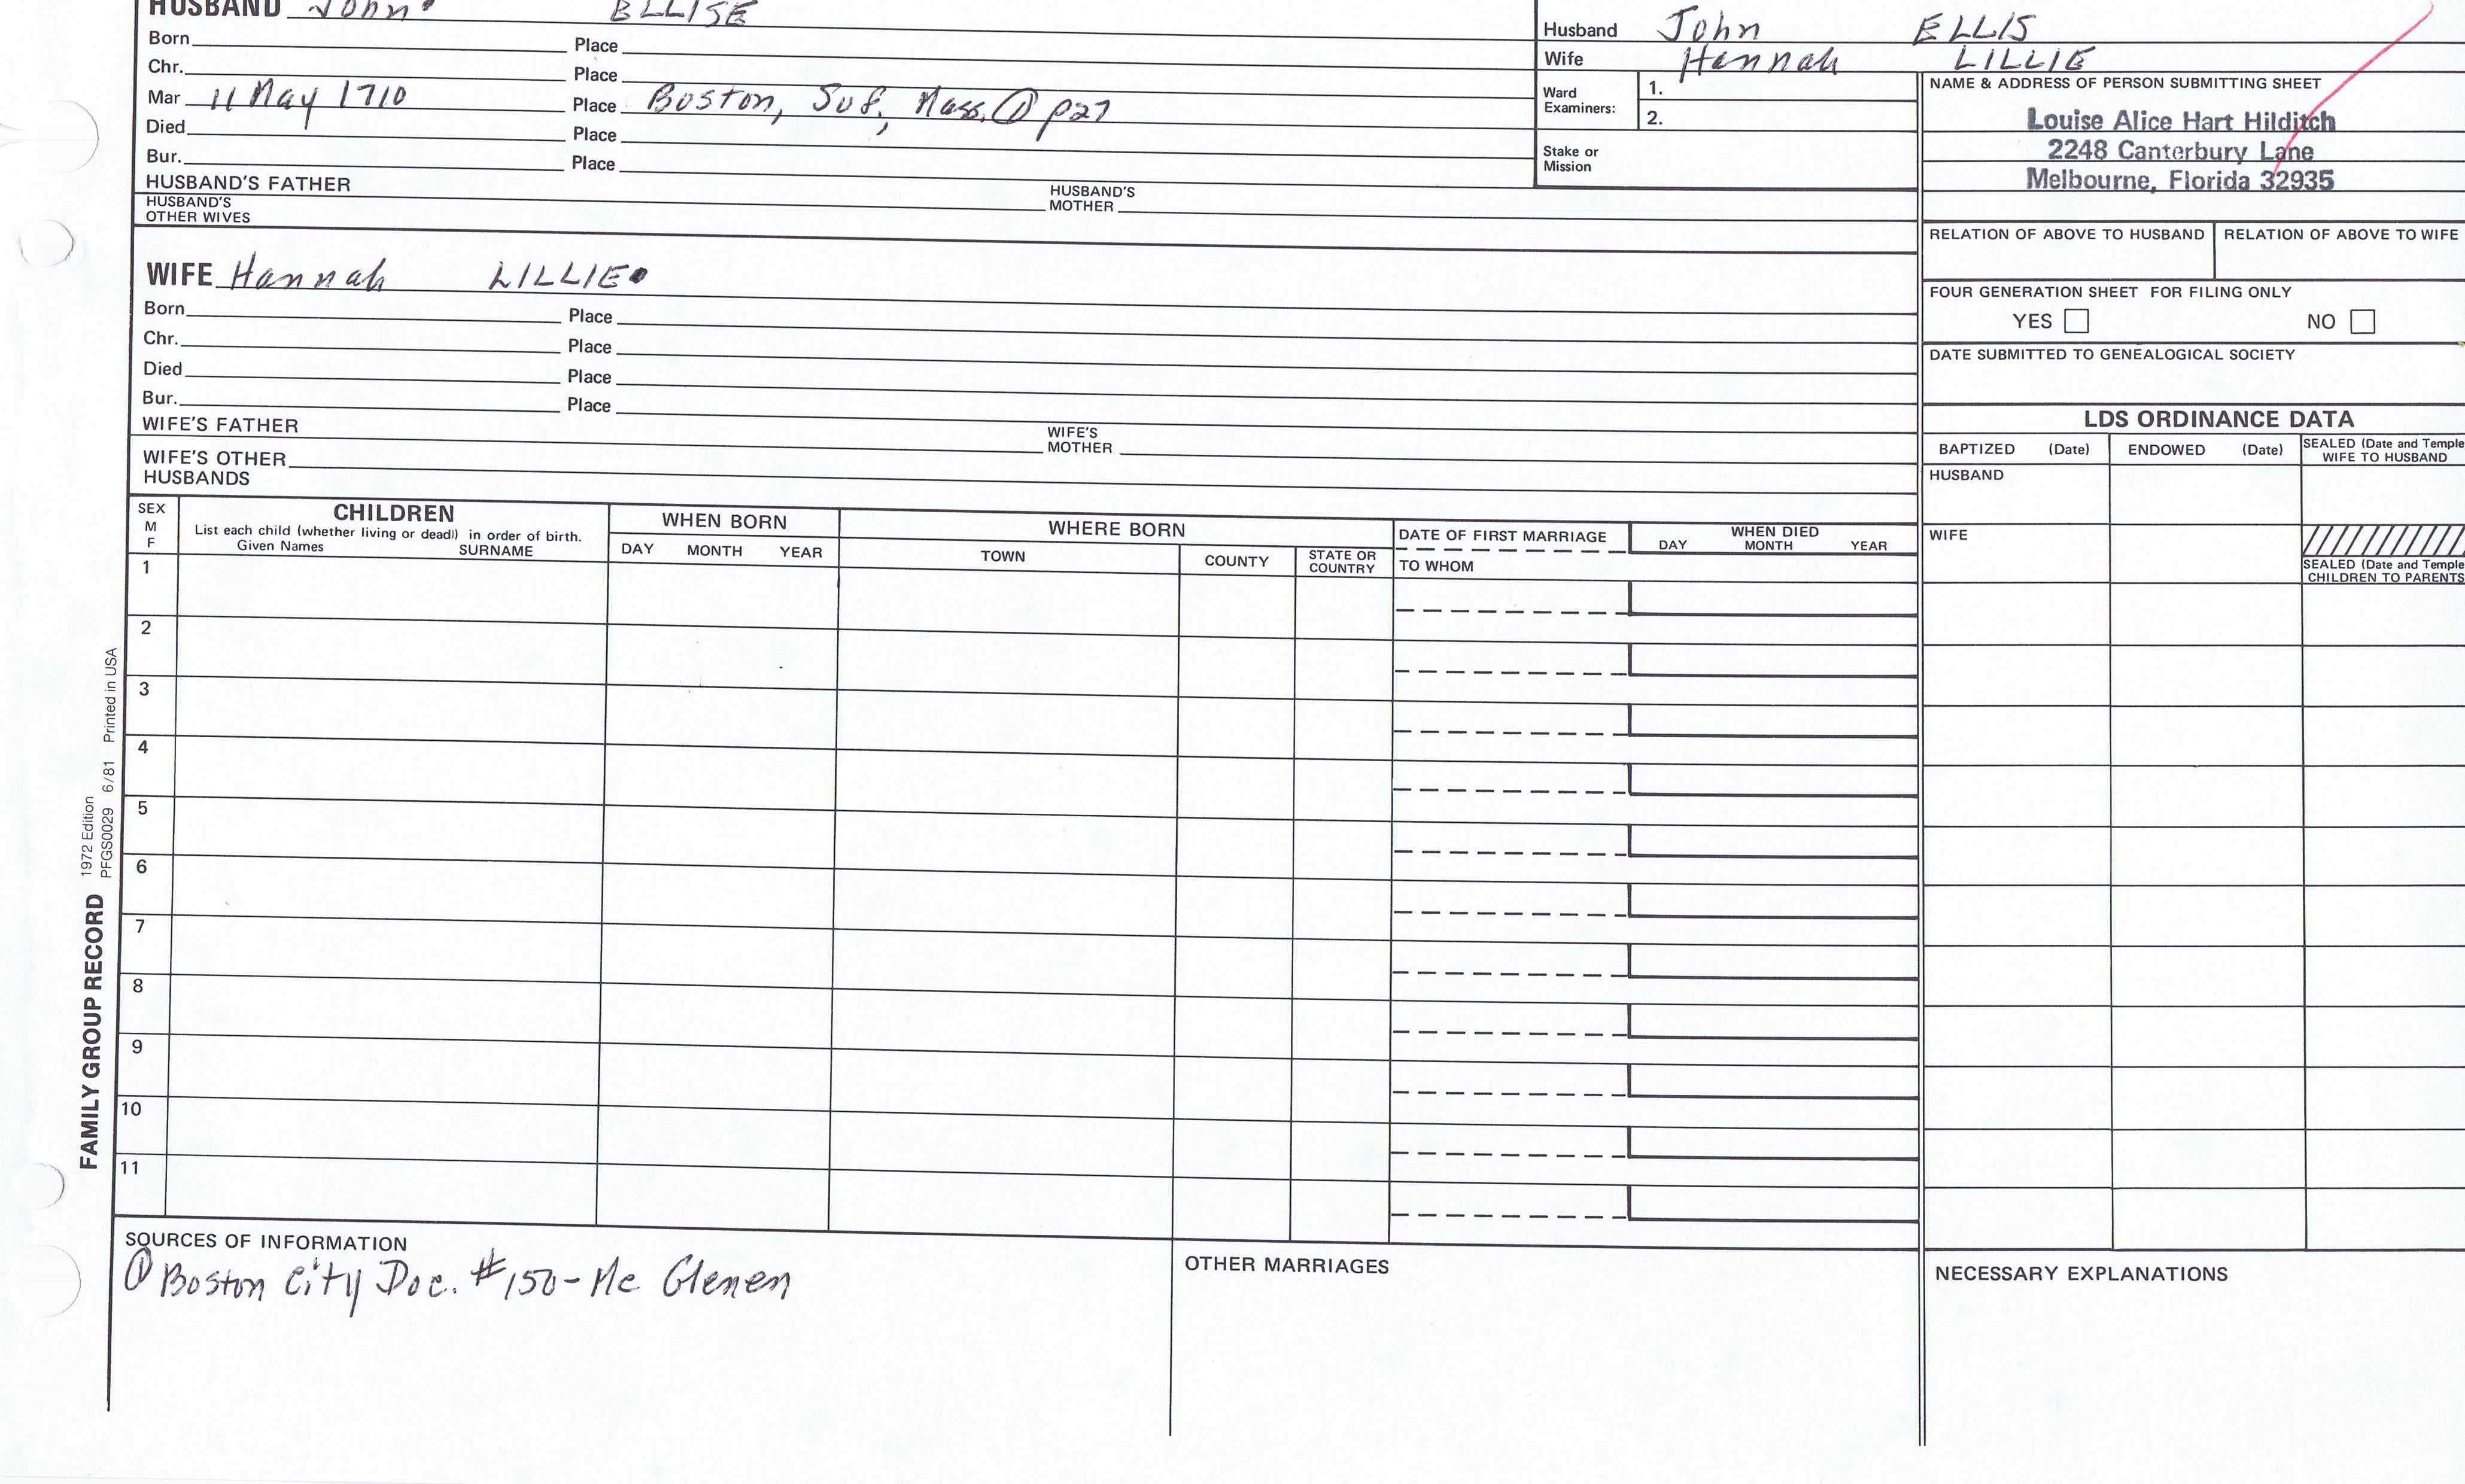 HUSBAND John ELLISE
Born Place
Chr. Place
Mar 11 May 1710 Place Boston, Suf, Mass. ① p27
Died Place
Bur. Place
HUSBAND'S FATHER HUSBAND'S MOTHER
HUSBAND'S OTHER WIVES
Husband John ELLIS
Wife Hannah LILLIE
Ward Examiners: 1.
2.
Stake or Mission
NAME & ADDRESS OF PERSON SUBMITTING SHEET
Louise Alice Hart Hilditch
2248 Canterbury Lane
Melbourne, Florida 32935
RELATION OF ABOVE TO HUSBAND RELATION OF ABOVE TO WIFE
FOUR GENERATION SHEET FOR FILING ONLY
YES NO
DATE SUBMITTED TO GENEALOGICAL SOCIETY
WIFE Hannah LILLIE
Born Place
Chr. Place
Died Place
Bur. Place
WIFE'S FATHER WIFE'S MOTHER
WIFE'S OTHER HUSBANDS
LDS ORDINANCE DATA
BAPTIZED (Date) ENDOWED (Date) SEALED (Date and Temple WIFE TO HUSBAND
HUSBAND
WIFE
SEALED (Date and Temple CHILDREN TO PARENTS
SEX M F
CHILDREN
List each child (whether living or dead) in order of birth.
Given Names SURNAME
WHEN BORN
DAY MONTH YEAR
WHERE BORN
TOWN COUNTY STATE OR COUNTRY
DATE OF FIRST MARRIAGE
TO WHOM
WHEN DIED
DAY MONTH YEAR
1
2
3
4
5
6
7
8
9
10
11
FAMILY GROUP RECORD
1972 Edition
PFGS0029 6/81 Printed in USA
SOURCES OF INFORMATION
① Boston City Doc. #150-Mc Glenen
OTHER MARRIAGES
NECESSARY EXPLANATIONS